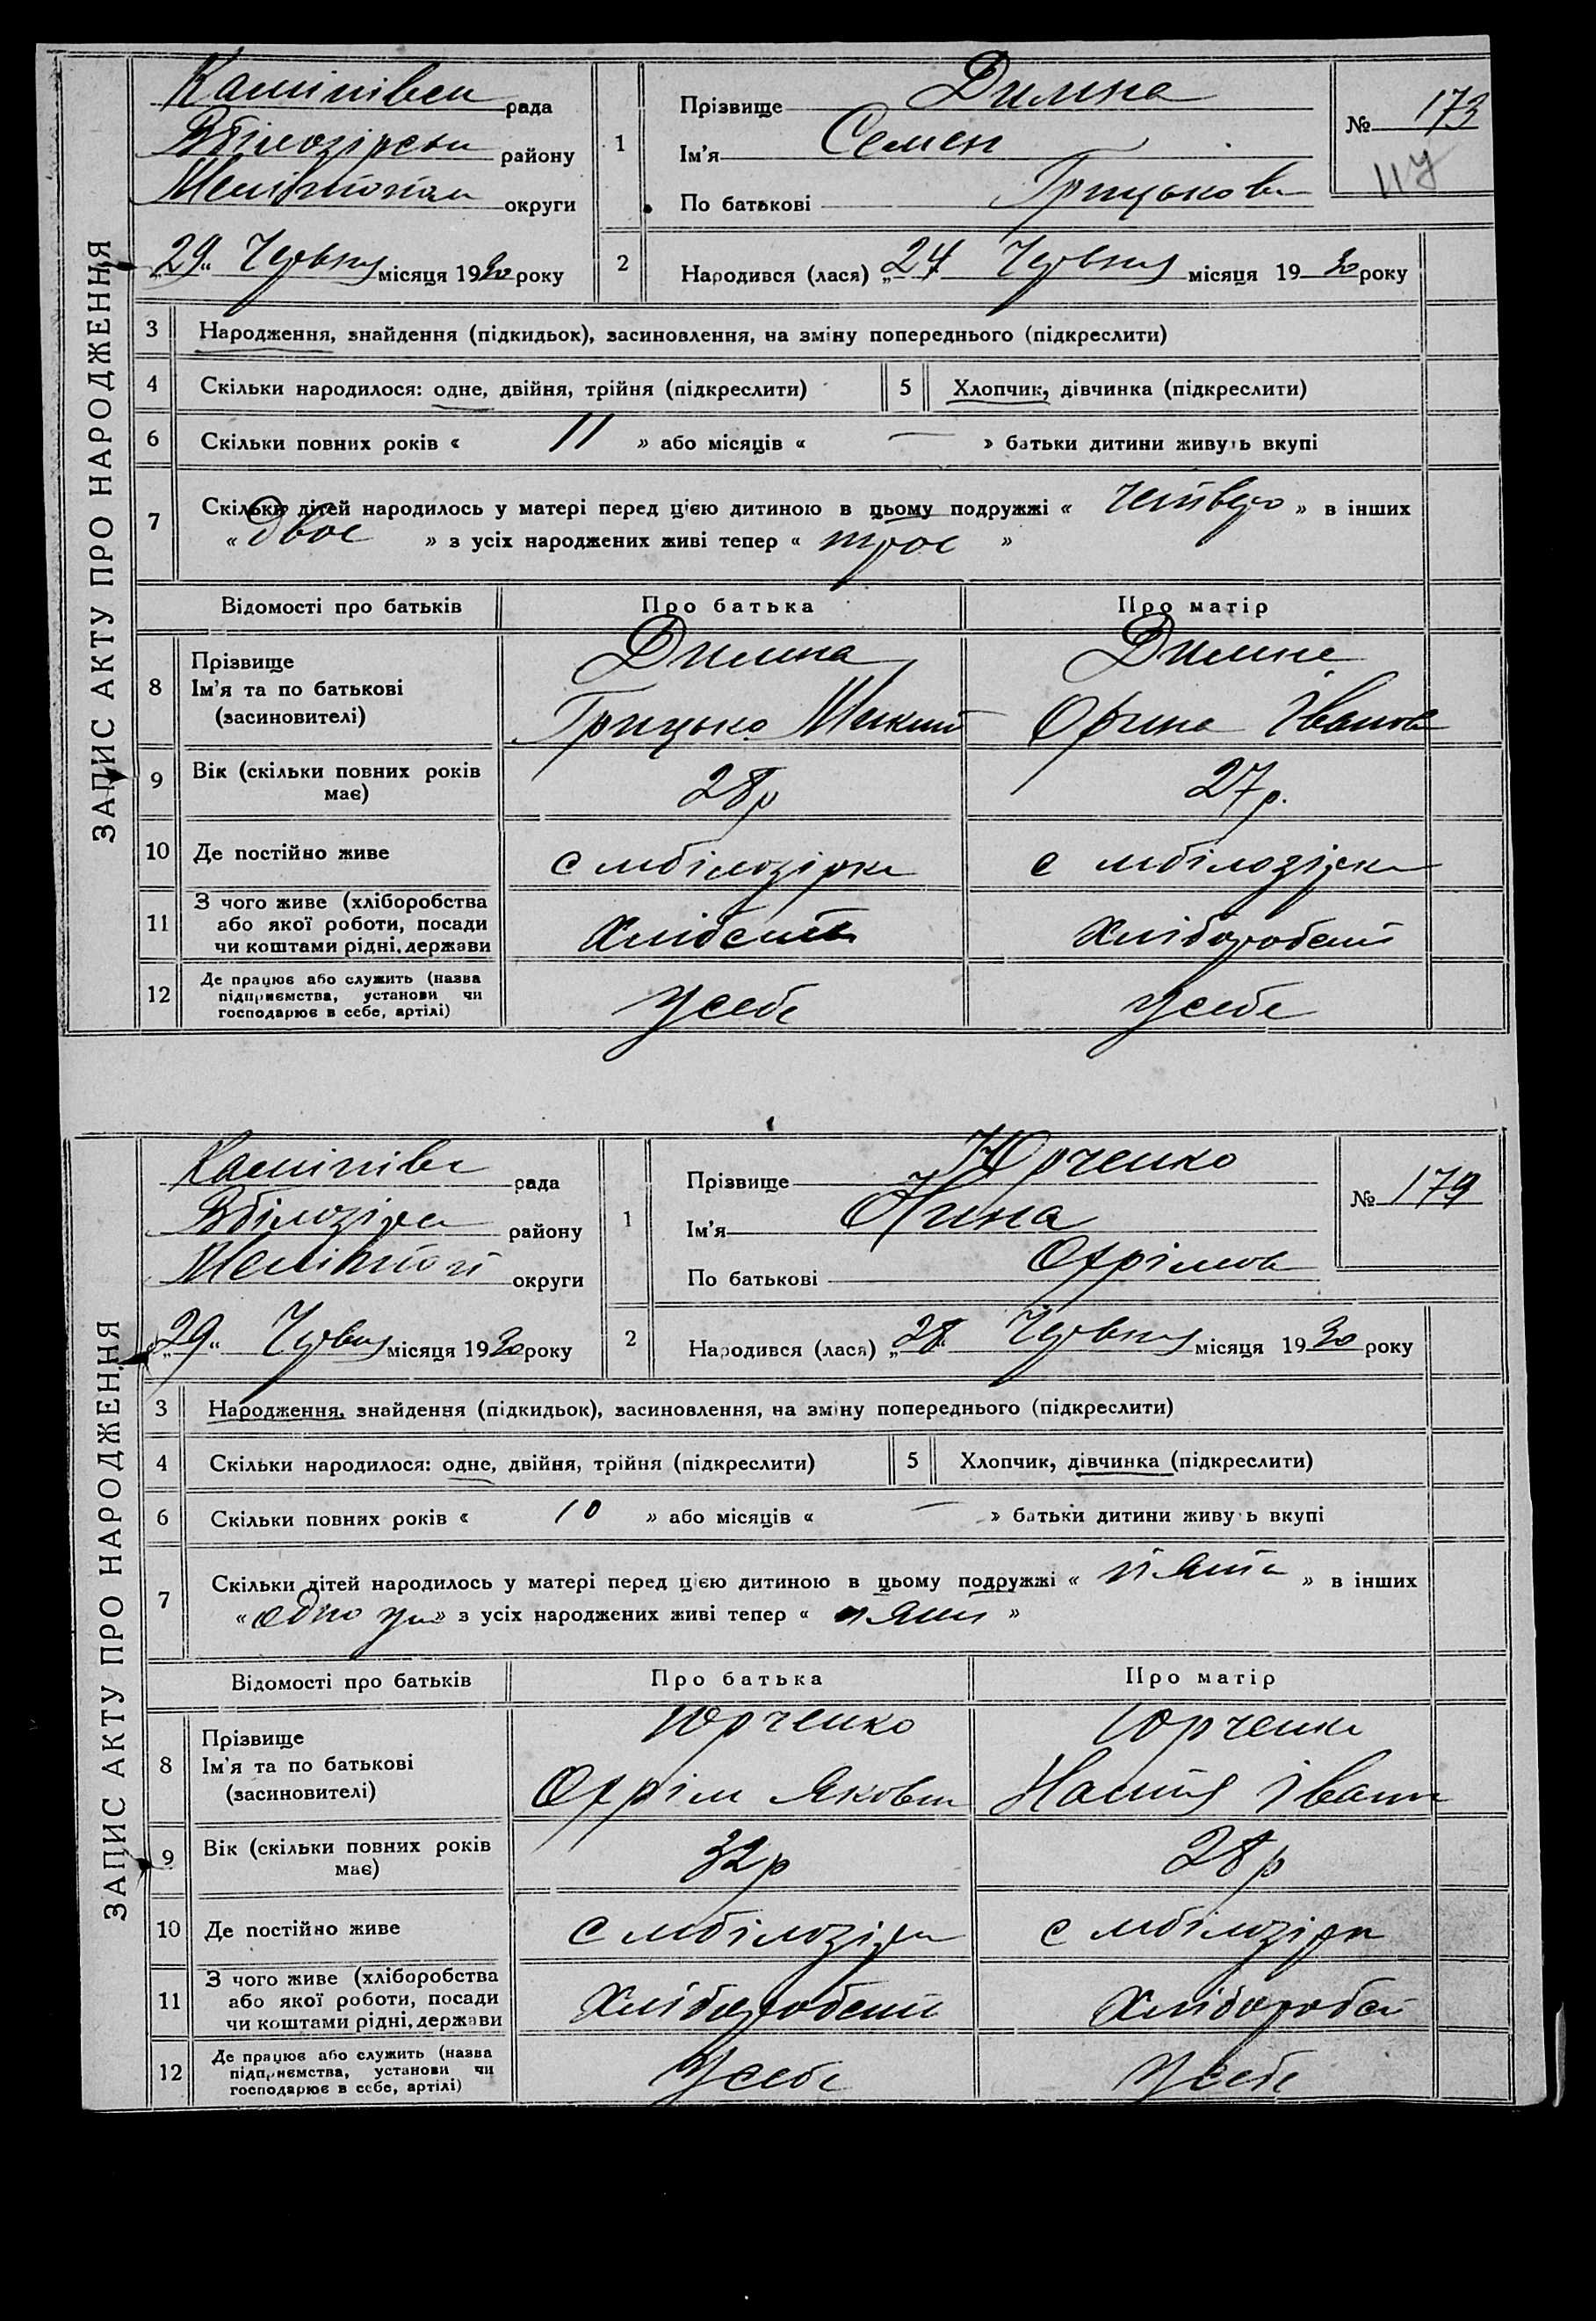 ЗАПИС АКТУ ПРО НАРОДЖЕННЯ
рада
району
Мелітопол округи
„29“ Червня місяця 1930 року
1
Прізвище Димна
Ім'я Семен
По батькові Грицьков
№ 173
2
Народився (лася) „24 Червня місяця 1930 року
3 Народження, знайдення (підкидьок), засиновлення, на зміну попереднього (підкреслити)
4 Скільки народилося: одне, двійня, трійня (підкреслити)
5 Хлопчик, дівчинка (підкреслити)
6 Скільки повних років « 11 » або місяців « — » батьки дитини живуть вкупі
7 Скільки дітей народилось у матері перед цією дитиною в цьому подружжі « четверо » в інших
« двое » з усіх народжених живі тепер « трое »
Відомості про батьків Про батька Про матір
8 Прізвище Димна Димна
Ім'я та по батькові Грицько Орина Іванов
(засиновителі)
9 Вік (скільки повних років має) 28р 27р.
10 Де постійно живе с мбілозірка с мбілозірка
11 З чого живе (хліборобства
або якої роботи, посади
чи коштами рідні, держави Хліборобст
12 Де працює або служить (назва
підприємства, установи чи
господарює в себе, артілі) У себе У себе
ЗАПИС АКТУ ПРО НАРОДЖЕННЯ
рада
району
Мелітоп округи
„29“ Червня місяця 1930 року
1
Прізвище Юрченко
Ім'я Нина
По батькові Охрімов
№ 179
2
Народився (лася) „28“ Червня місяця 1930 року
3 Народження, знайдення (підкидьок), засиновлення, на зміну попереднього (підкреслити)
4 Скільки народилося: одне, двійня, трійня (підкреслити)
5 Хлопчик, дівчинка (підкреслити)
6 Скільки повних років « 10 » або місяців « — » батьки дитини живуть вкупі
7 Скільки дітей народилось у матері перед цією дитиною в цьому подружжі « пять » в інших
« одно » з усіх народжених живі тепер « »
Відомості про батьків Про батька Про матір
8 Прізвище Юрченко Юрченко
Ім'я та по батькові Охрім Яковл Настя Іванн
(засиновителі)
9 Вік (скільки повних років має) 32р 28р
10 Де постійно живе с мбілозірк с мбілозірк
11 З чого живе (хліборобства
або якої роботи, посади
чи коштами рідні, держави Хліборобст Хлібороб
12 Де працює або служить (назва
підприємства, установи чи
господарює в себе, артілі) У себе У себе